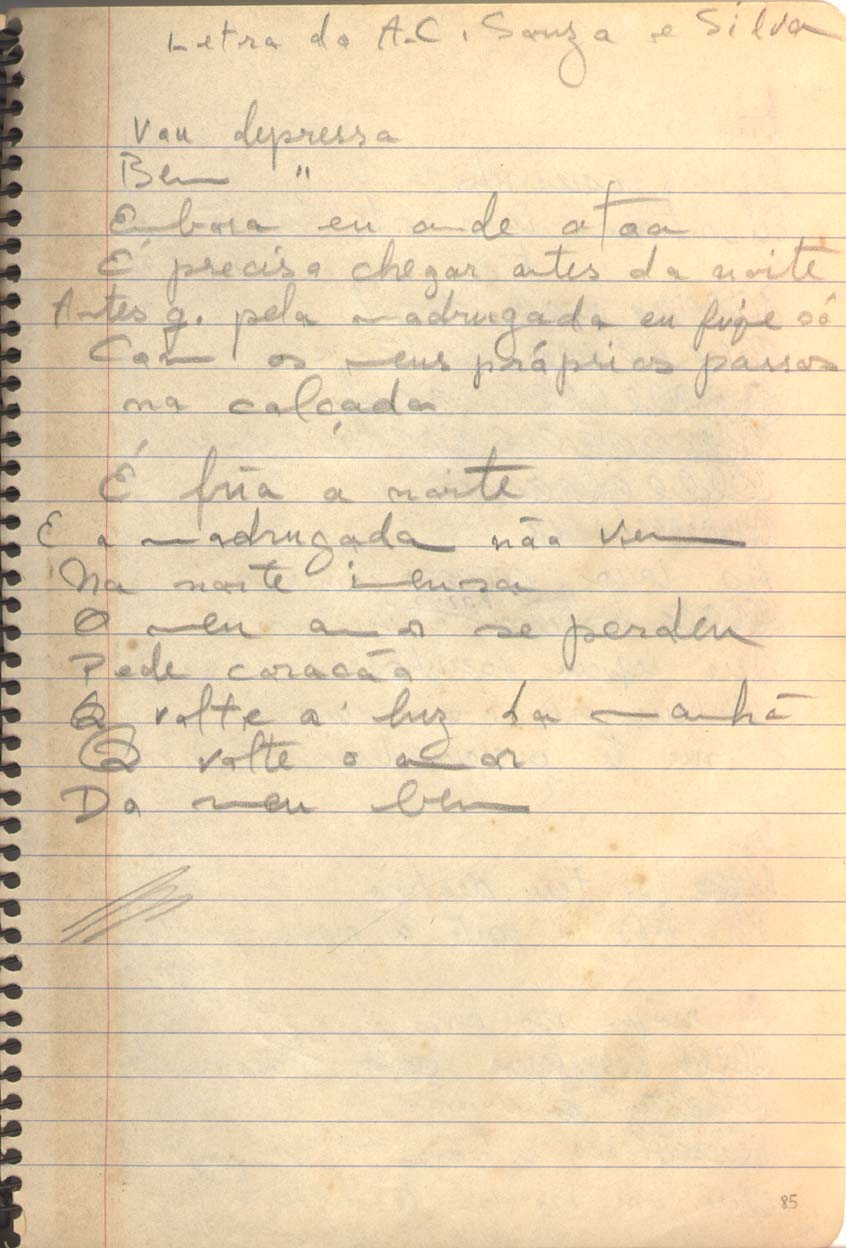 Letra do A.C. Souza e Silva
Vou depressa
Bem "
Embora eu ande atoa
É preciso chegar antes da noite
Antes q. pela madrugada eu fique só
Com os meus próprios passos
na calçada
É fria a noite
E a madrugada não vem
Na noite imensa
O meu amor se perdeu
Pede coracão
Q volte a luz da manhã
Q volte o amor
Do meu bem
85